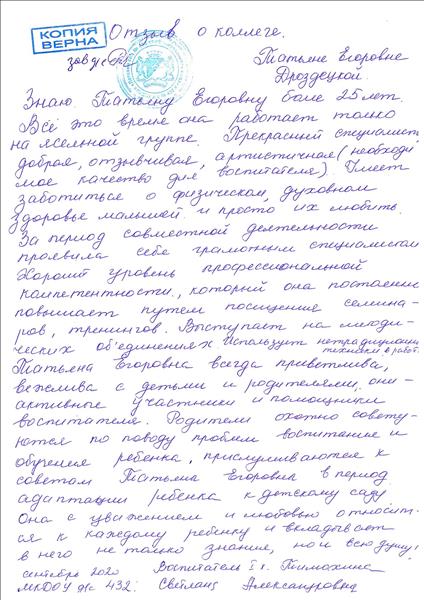 КОПИЯ
ВЕРНА
Отзыв о коллеге.
зав д/с
Татьяне Егоровне
Дроздецкой.
Знаю Татьяну Егоровну боле 25 лет.
Всё это время она работает только
на ясельной группе. Прекрасный специалист
добрая, отзывчивая, артистичная (необходи
мое качество для воспитателя) Умеет
заботиться о физическом, духовном
здоровье малышей и просто их любить.
За период совместной деятельности
проевила себе грамотным специалистом
Хороший уровень профессиональной
компетентности, который она постоянно
повышает путем посищения семина-
ров, тренингов. Выступает на методи-
ческих об'единениях использует нетрадицион
техники в работ.
Татьяна Егоровна всегда приветлива,
вежлива с детьми и родителями, они -
активные участники и помощники
воспитателя. Родители охотно совету-
ются по поводу проблем воспитание и
обучения ребенка, прислушиваются к
советам Татьяна Егоровна в период
адаптации ребенка к детскому саду
Она с уважением и любовью относит-
ся к каждому ребенку и вкладывает
в него не только знания, но и всю душу.
сентябрь 2020 Воспитатель
МКДОУ д/с 432: Светлана Александровна